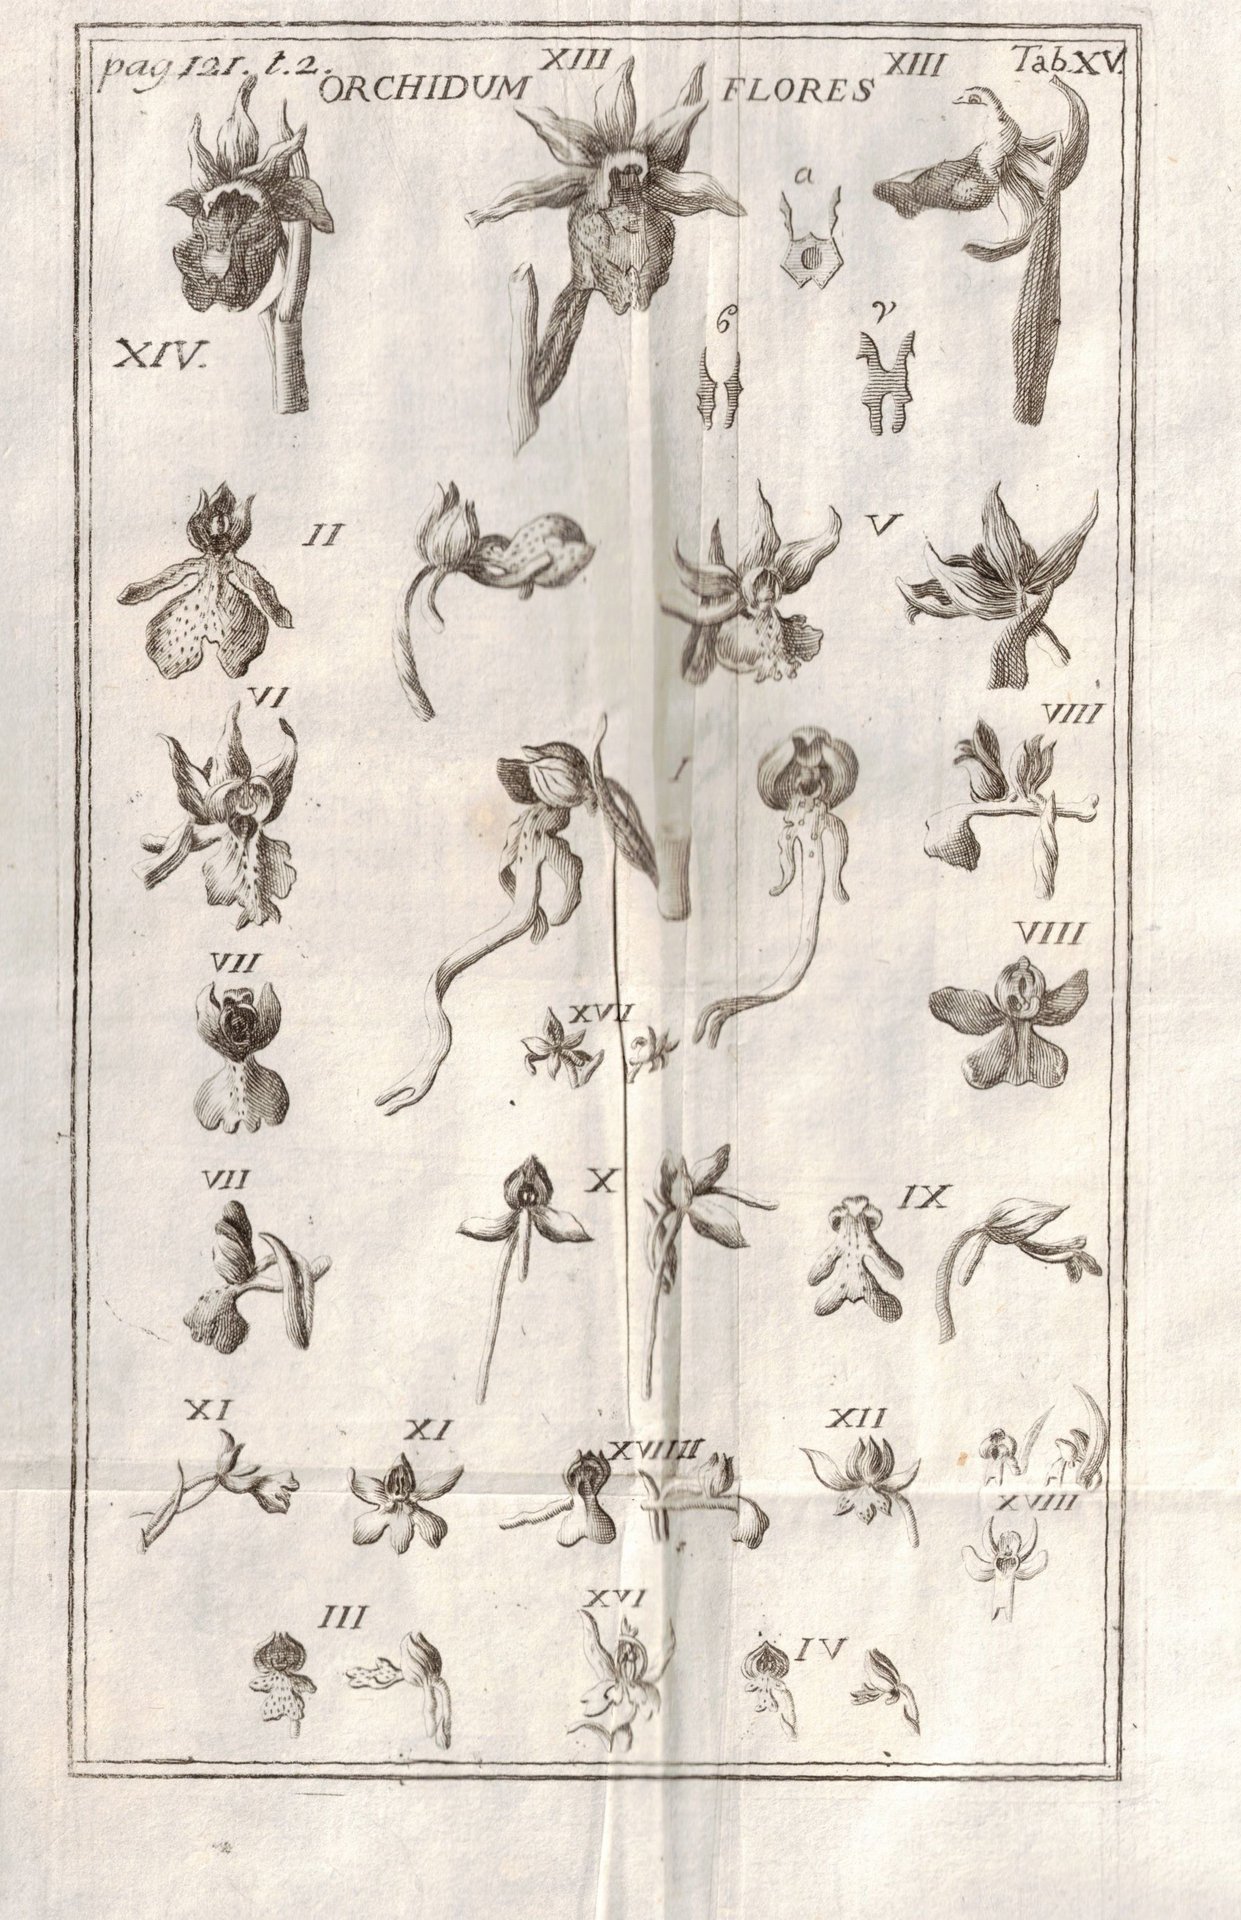 pag 121. t.2. XIII XIII Tab.XV.
ORCHIDUM FLORES
a
XIV.
6 γ
II V
VI VIII
I
VIII
VII
XVII
VII X IX
XI XI XII
XVIIII
XVIII
XVI
III IV